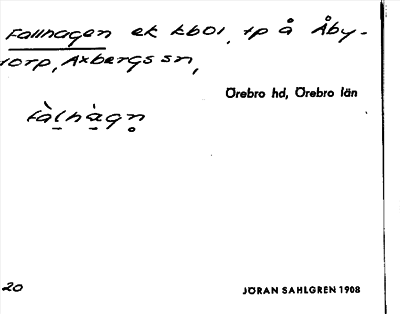 Fallhagen ek kbol, tp å Åby-
torp, Axbergs sn,
Örebro hd, Örebro län
fàl̠hà̠gn̥
20
JÖRAN SAHLGREN 1908